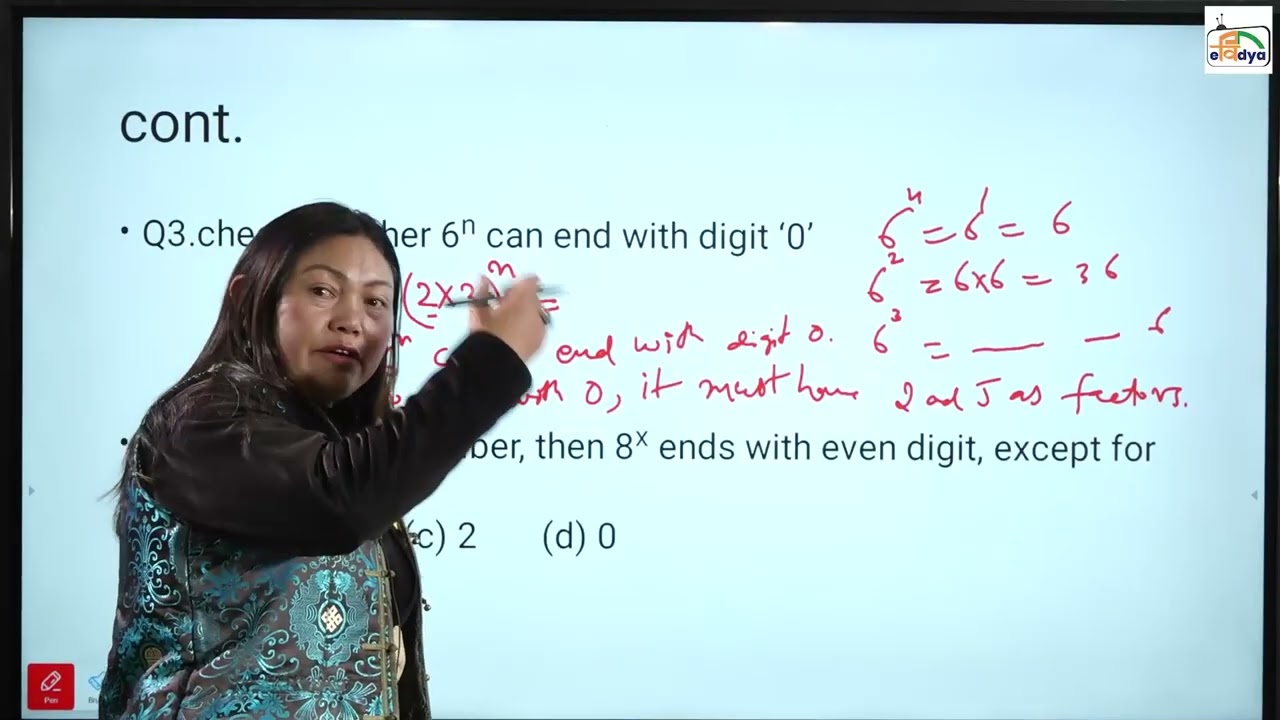 eविdya
cont.
• Q3.che her 6ⁿ can end with digit ‘0’
6ⁿ = 6¹ = 6
6² = 6x6 = 36
(2x3)ⁿ =
end with digit 0.
6³ = — — 6
0, it must have 2 ad 5 as factors.
ber, then 8ˣ ends with even digit, except for
(c) 2 (d) 0
Pen